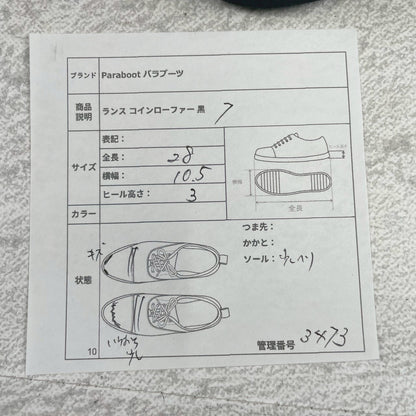 ブランド Paraboot パラブーツ
商品説明 ランス コインローファー 黒 7
サイズ
表記：
全長： 28
横幅： 10.5
ヒール高さ： 3
ヒール高さ
横幅
全長
カラー
状態
つま先：
かかと：
ソール：
10
管理番号 3473